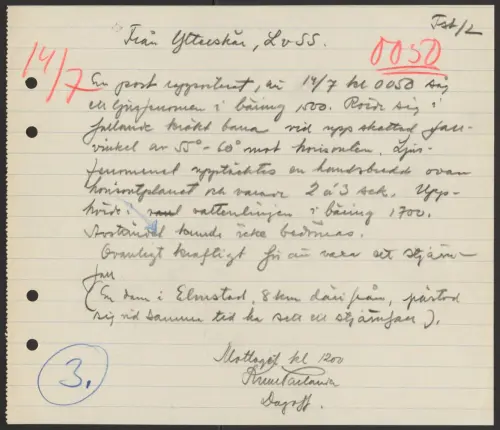 Fst/L
Från Ytterskär, LvSS.
14/7
0050
En post rapporterat, att 14/7 kl 0050 sig
ett ljusfenomen i bäring 1500. Rörde sig i
fallande krökt bana vid uppskattad fall-
vinkel av 55°-60° mot horisonten. Ljus-
fenomenet upptäcktes en handsbredd ovan
horisontplanet och varade 2 à 3 sek. Upp-
hörde i vattenlinjen i bäring 1700.
Avståndet kunde icke bedömas.
Ovanligt kraftigt för att vara ett stjärn-
fall
(En dam i Elmstad, 8 km därifrån, påstod
sig vid samma tid ha sett ett stjärnfall).
Mottaget kl 1200
Dagoff.
3.